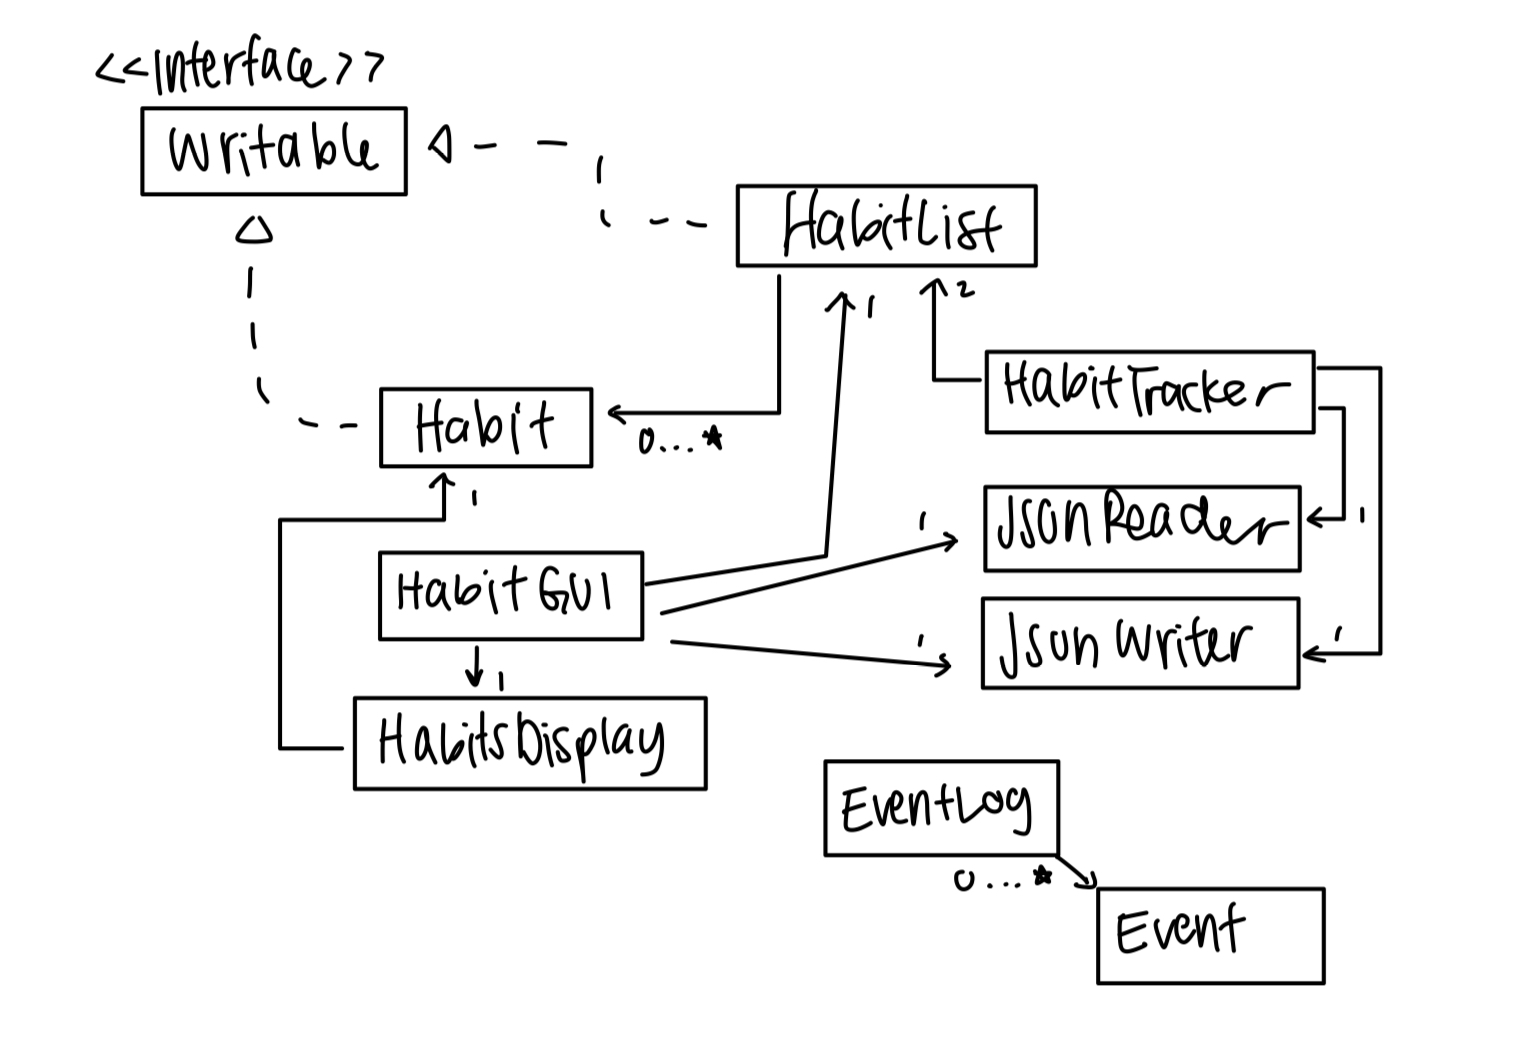 <<interface>>
Writable
HabitList
1
2
HabitTracker
Habit
0...*
1
JsonReader
1
1
HabitGUI
JsonWriter
1
1
1
HabitsDisplay
EventLog
0...*
Event